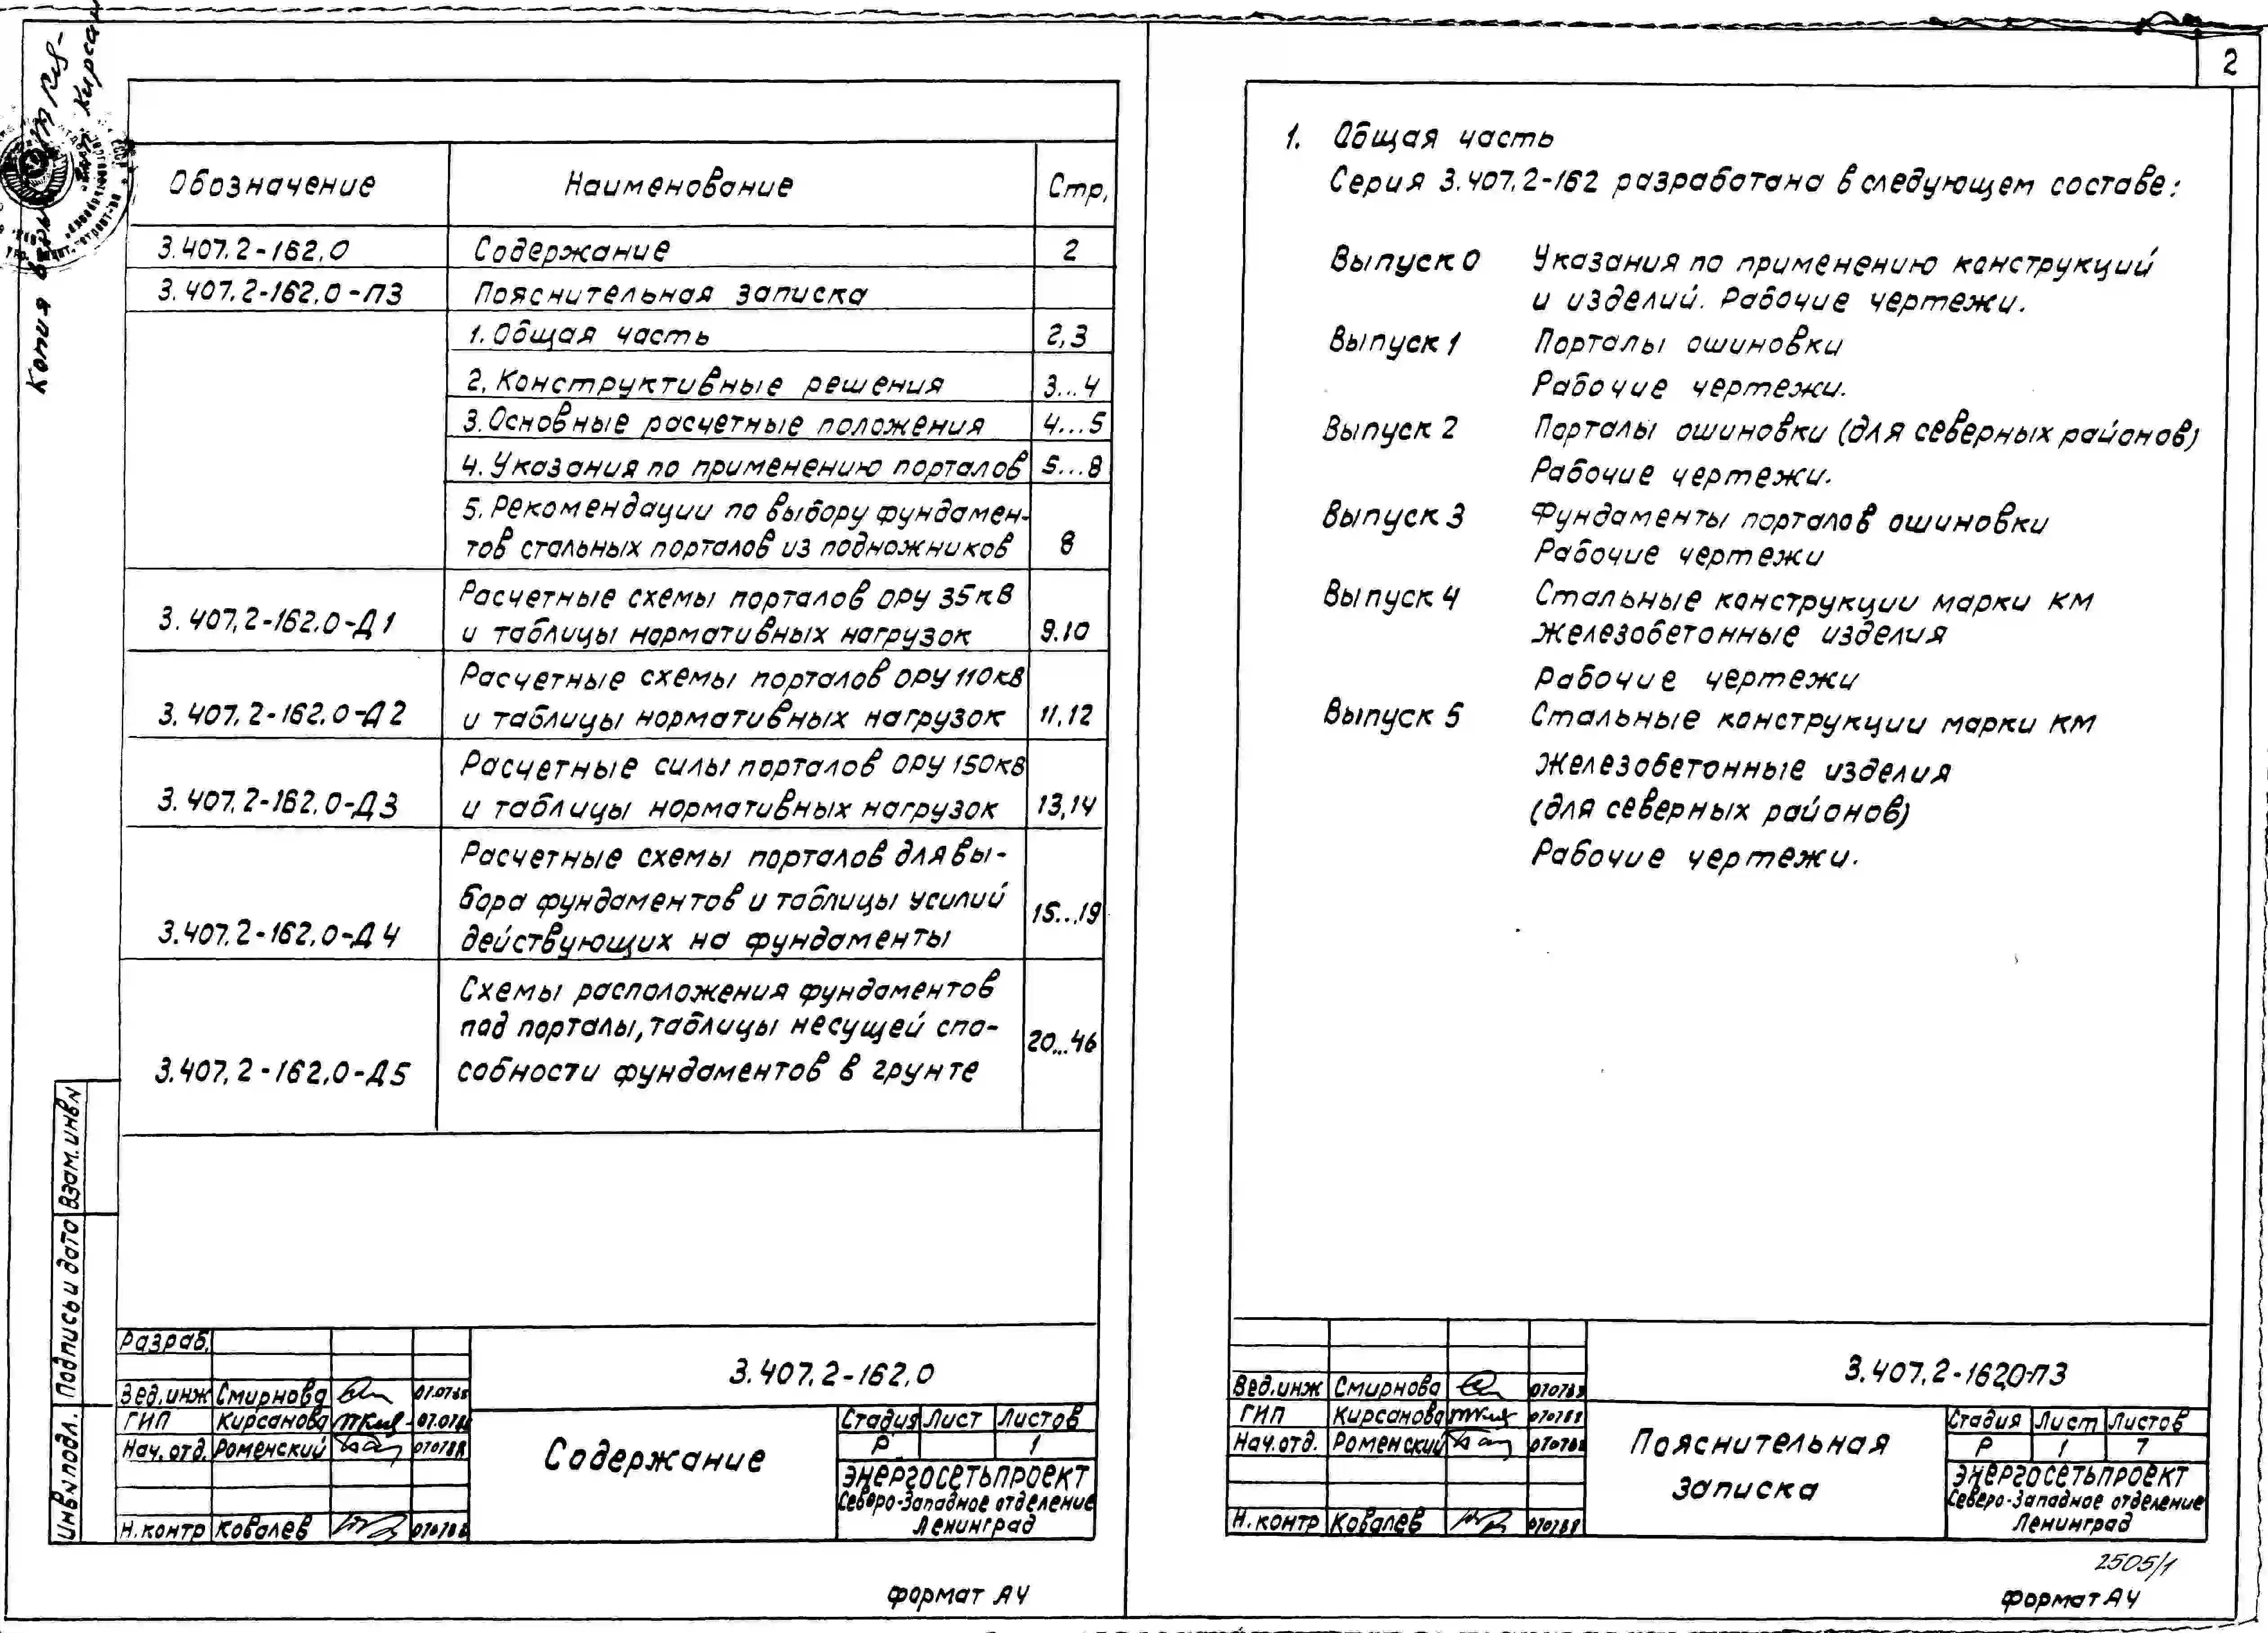 2
Копия верна
Обозначение Наименование Стр.
3.407.2-162.0 Содержание 2
3.407.2-162.0-ПЗ Пояснительная записка
1. Общая часть 2,3
2. Конструктивные решения 3...4
3. Основные расчетные положения 4...5
4. Указания по применению порталов 5...8
5. Рекомендации по выбору фундамен-
тов стальных порталов из подножников 8
Расчетные схемы порталов ОРУ 35кВ
3.407.2-162.0-Д1 и таблицы нормативных нагрузок 9.10
Расчетные схемы порталов ОРУ 110кВ
3.407.2-162.0-Д2 и таблицы нормативных нагрузок 11,12
Расчетные силы порталов ОРУ 150кВ
3.407.2-162.0-Д3 и таблицы нормативных нагрузок 13,14
Расчетные схемы порталов для вы-
бора фундаментов и таблицы усилий 15...19
3.407.2-162.0-Д4 действующих на фундаменты
Схемы расположения фундаментов
под порталы, таблицы несущей спо- 20...46
3.407.2-162.0-Д5 собности фундаментов в грунте
Взам.инв№
Подпись и дата
Инв№подл.
Разраб.
Вед.инж Смирнова 07.07.88
ГИП Кирсанова 07.07.88
Нач.отд. Роменский 070788
Н.контр Ковалев 070788
3.407.2-162.0
Содержание
Стадия Лист Листов
Р 1
ЭНЕРГОСЕТЬПРОЕКТ
Северо-Западное отделение
Ленинград
Формат А4
1. Общая часть
Серия 3.407.2-162 разработана в следующем составе:
Выпуск 0 Указания по применению конструкций
и изделий. Рабочие чертежи.
Выпуск 1 Порталы ошиновки
Рабочие чертежи.
Выпуск 2 Порталы ошиновки (для северных районов)
Рабочие чертежи.
Выпуск 3 Фундаменты порталов ошиновки
Рабочие чертежи
Выпуск 4 Стальные конструкции марки КМ
Железобетонные изделия
Рабочие чертежи
Выпуск 5 Стальные конструкции марки КМ
Железобетонные изделия
(для северных районов)
Рабочие чертежи.
Вед.инж Смирнова 070788
ГИП Кирсанова 070788
Нач.отд. Роменский 070788
Н.контр Ковалев 070788
3.407.2-162.0-ПЗ
Пояснительная
записка
Стадия Лист Листов
Р 1 7
ЭНЕРГОСЕТЬПРОЕКТ
Северо-Западное отделение
Ленинград
2505/1
Формат А4